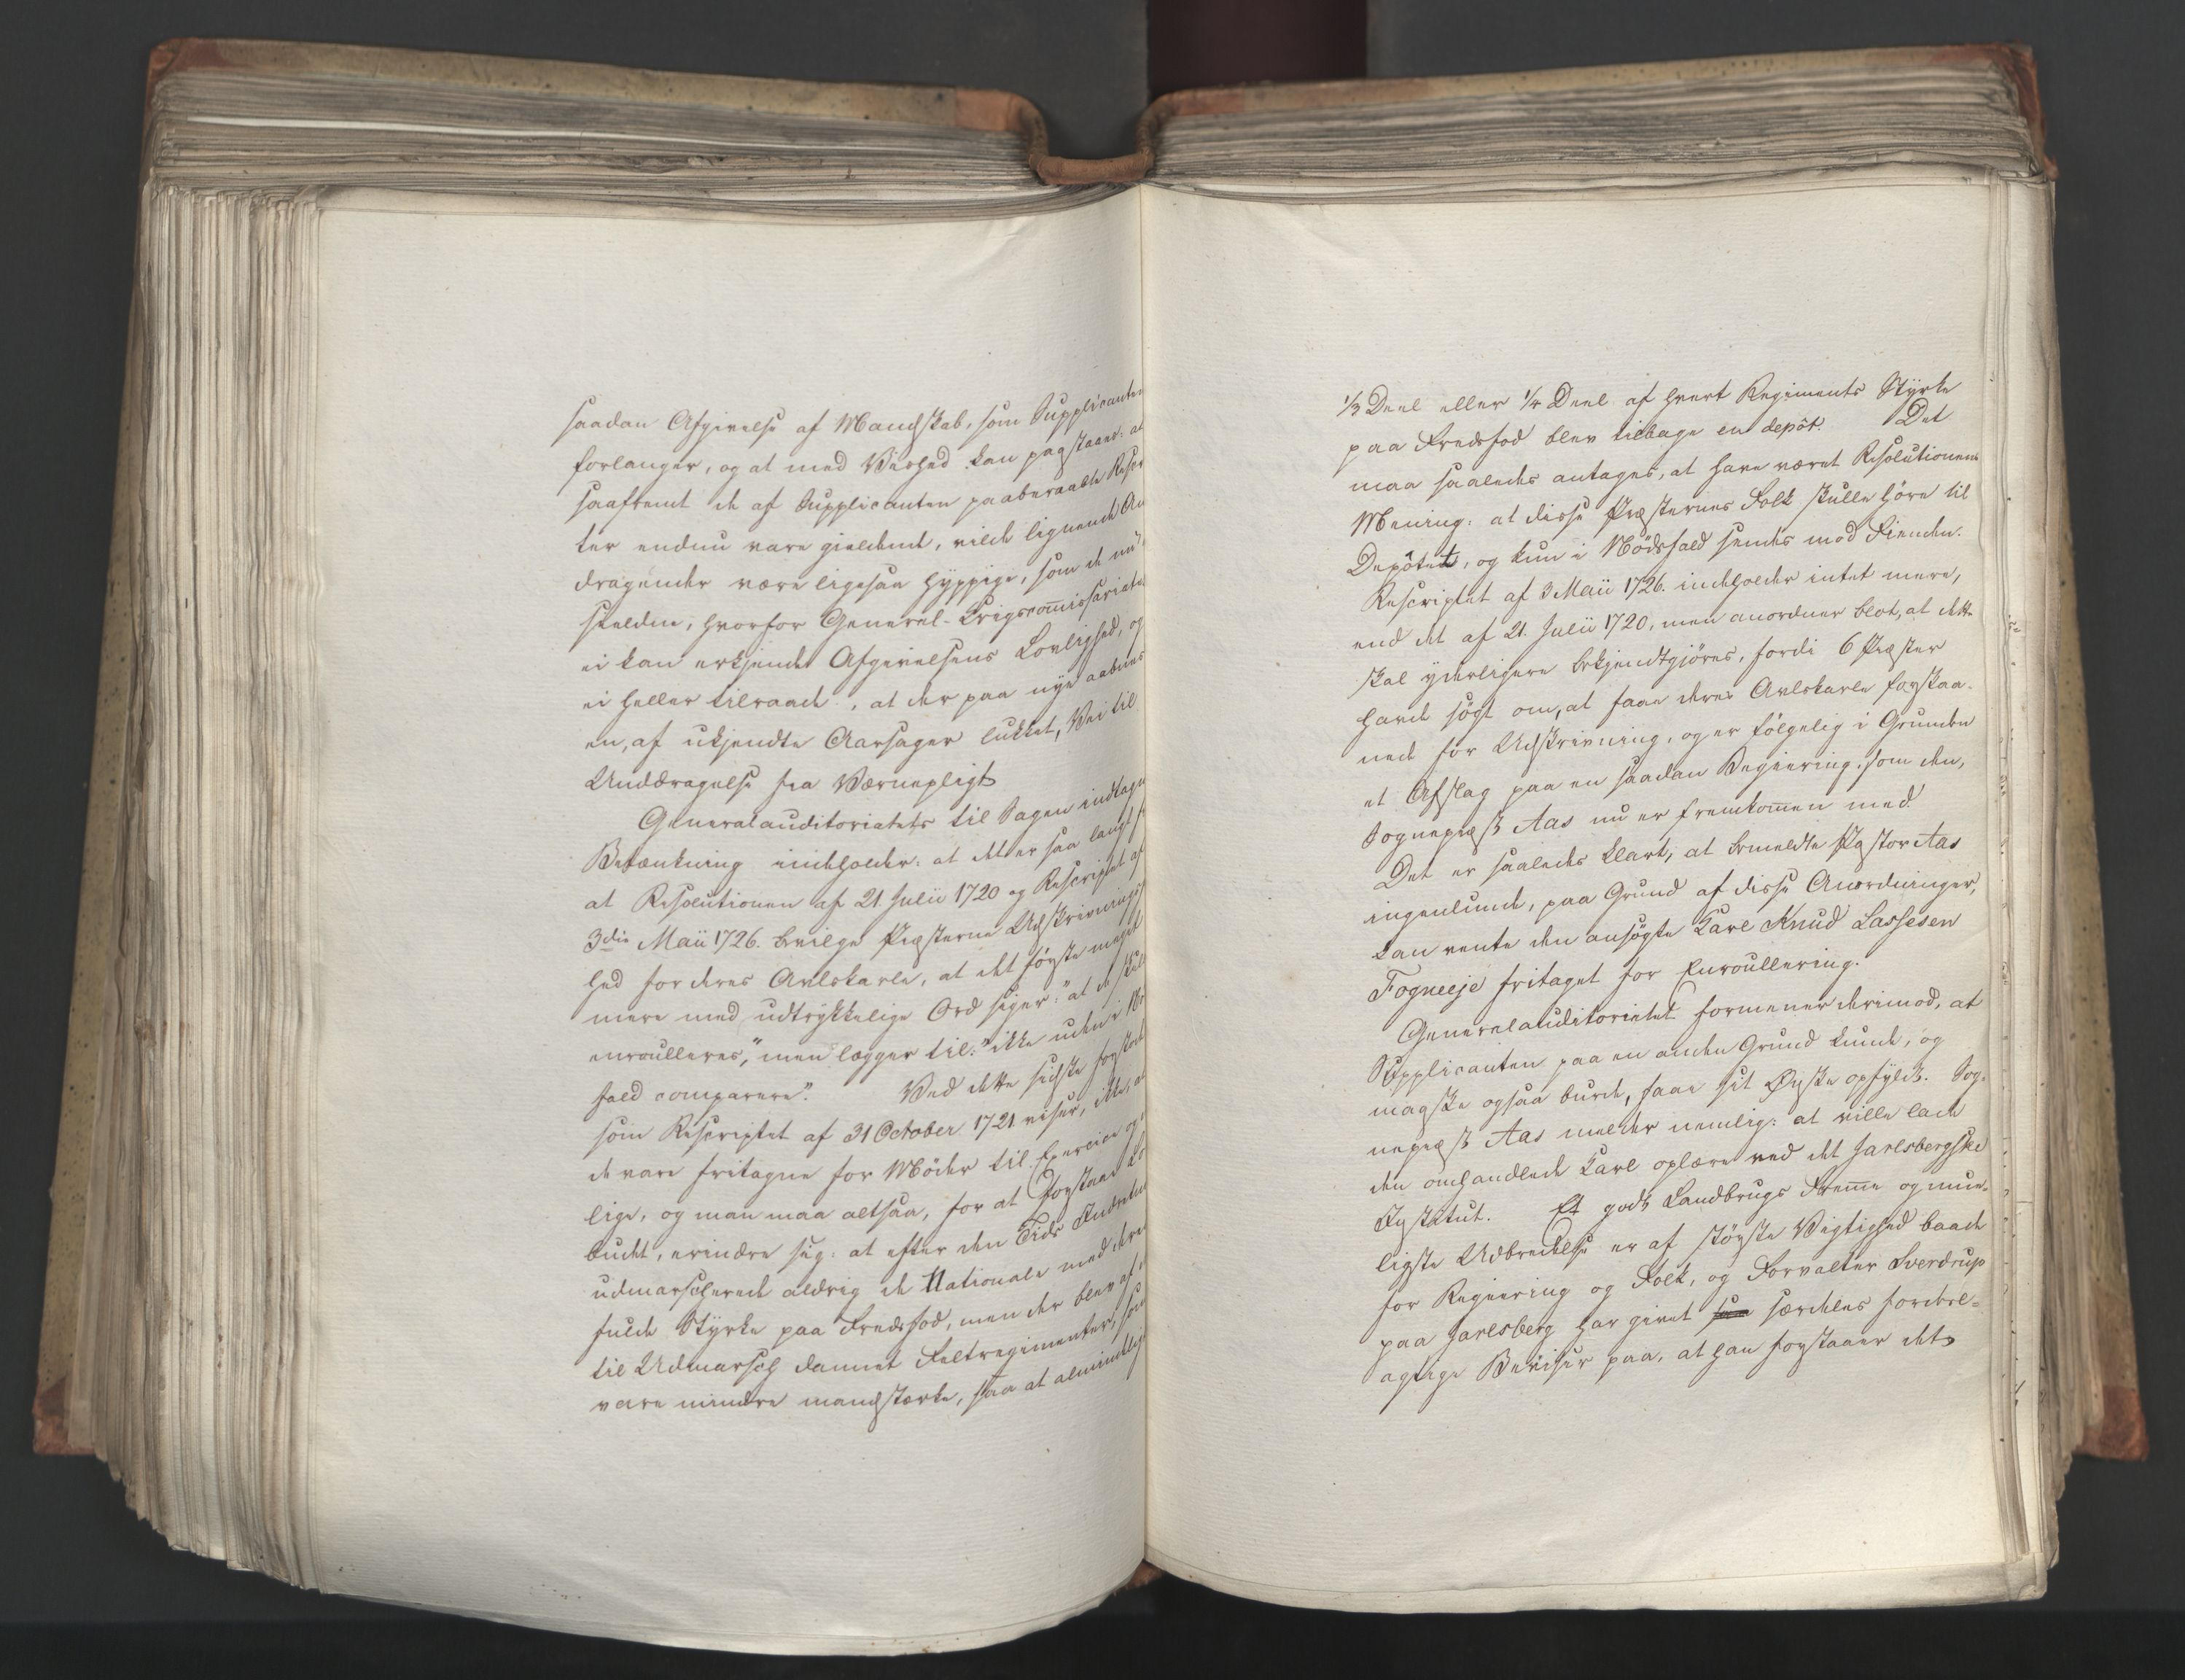 saadan Afgivelse af Mandskab, som Supplicanten
forlanger, og at med Vished kan paastaaes: at
saafremt de af Supplicanten paaberaabte Rescr
ter endnu vare gieldende, vilde lignende An
dragender være ligesaa hyppige, som de nu
sielden, hvorfor General-Krigscom̅issariatet
ei kan erkjende Afgivelsens Lovlighed, og
ei heller tilraade, at der paa nye aabnes
en, af ukjendte Aarsager lukket, Vei til
Unddragelse fra Værnepligt
Generalauditoriatets til Sagen indtagne
Betænkning indeholder: at det er saa langt fr
at Resolutionen af 21. Julii 1720 og Rescriptet af
3die Maii 1726. bevilge Præsterne Udskrivningsf
hed for deres Avlskarle, at det første meget
mere med udtrykkelige Ord siger: "at de skulle
enroulleres," men lægger til: "ikke uden i Nø
fald comparere." Ved dette sidste forstod
som Rescriptet af 31 October 1721 viser, ikke, at
de vare fritagne for Møder til Exercice og
lige, og man maa altsaa, for at forstaae Lo
budet, erindre sig: at efter den Tids Indretn
udmarscherede aldrig de Nationale med dere
fulde Styrke paa Fredsfod, men der blev af
til Udmarsch dannet Feltregimenter, som
vare mindre mandstærke, saa at almindelig
1/3 Deel eller 1/4 Deel af hvert Regiments Styrke
paa Fredsfod blev tilbage en depôt. Det
maa saaledes antages, at have været Resolutionens
Mening: at disse Præsternes Folk skulle høre til
Depôtet, og kun i Nødsfald sendes mod Fienden.
Rescriptet af 3 Maii 1726. indeholder intet mere,
end det af 21. Julii 1720, men anordner blot, at dette
skal yderligere bekjendtgjøres, fordi 6 Præster
havde søgt om, at faae deres Avlskarle forskaa-
nede for Udskrivning, og er følgelig i Grunden
et Afslag paa en saadan Begiering, som den,
Sognepræst Aas nu er fremkom̅en med.
Det er saaledes klart, at bemeldte Pastor Aas
ingenlunde, paa Grund af disse Anordninger,
kan vente den ansøgte Karl Knud Lassesen
Fogneeje fritaget for Enroullering.
Generalauditoriatet formener derimod, at
Supplicanten paa en anden Grund kunde, og
maaske ogsaa burde, faae sit Ønske opfyldt. Sog-
nepræst Aas melder nemlig: at ville lade
den omhandlede Karl oplære ved det Jarlsbergske
Institut. Et godt Landbrugs Frem̅e og mue-
ligste Udbredelse er af største Vigtighed baade
for Regiering og Folk, og Forvalter Sverdrup
paa Jarlsberg har givet særdeles fordeel-
agtige Beviser paa, at han forstaaer det